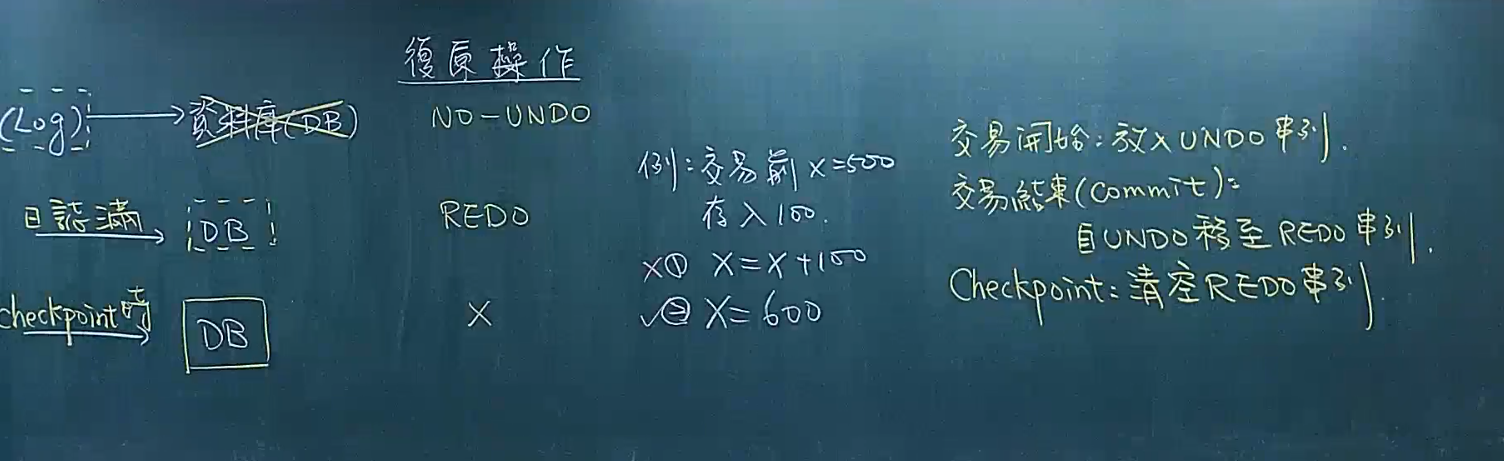 復原操作
(Log) → 資料庫(DB) NO-UNDO
日誌滿 → DB REDO
checkpoint時 → DB X
例:交易前 X=500
存入100.
X① X=X+100
✓② X=600
交易開始:放入UNDO串列.
交易結束(commit):
自UNDO移至REDO串列.
Checkpoint:清空REDO串列.